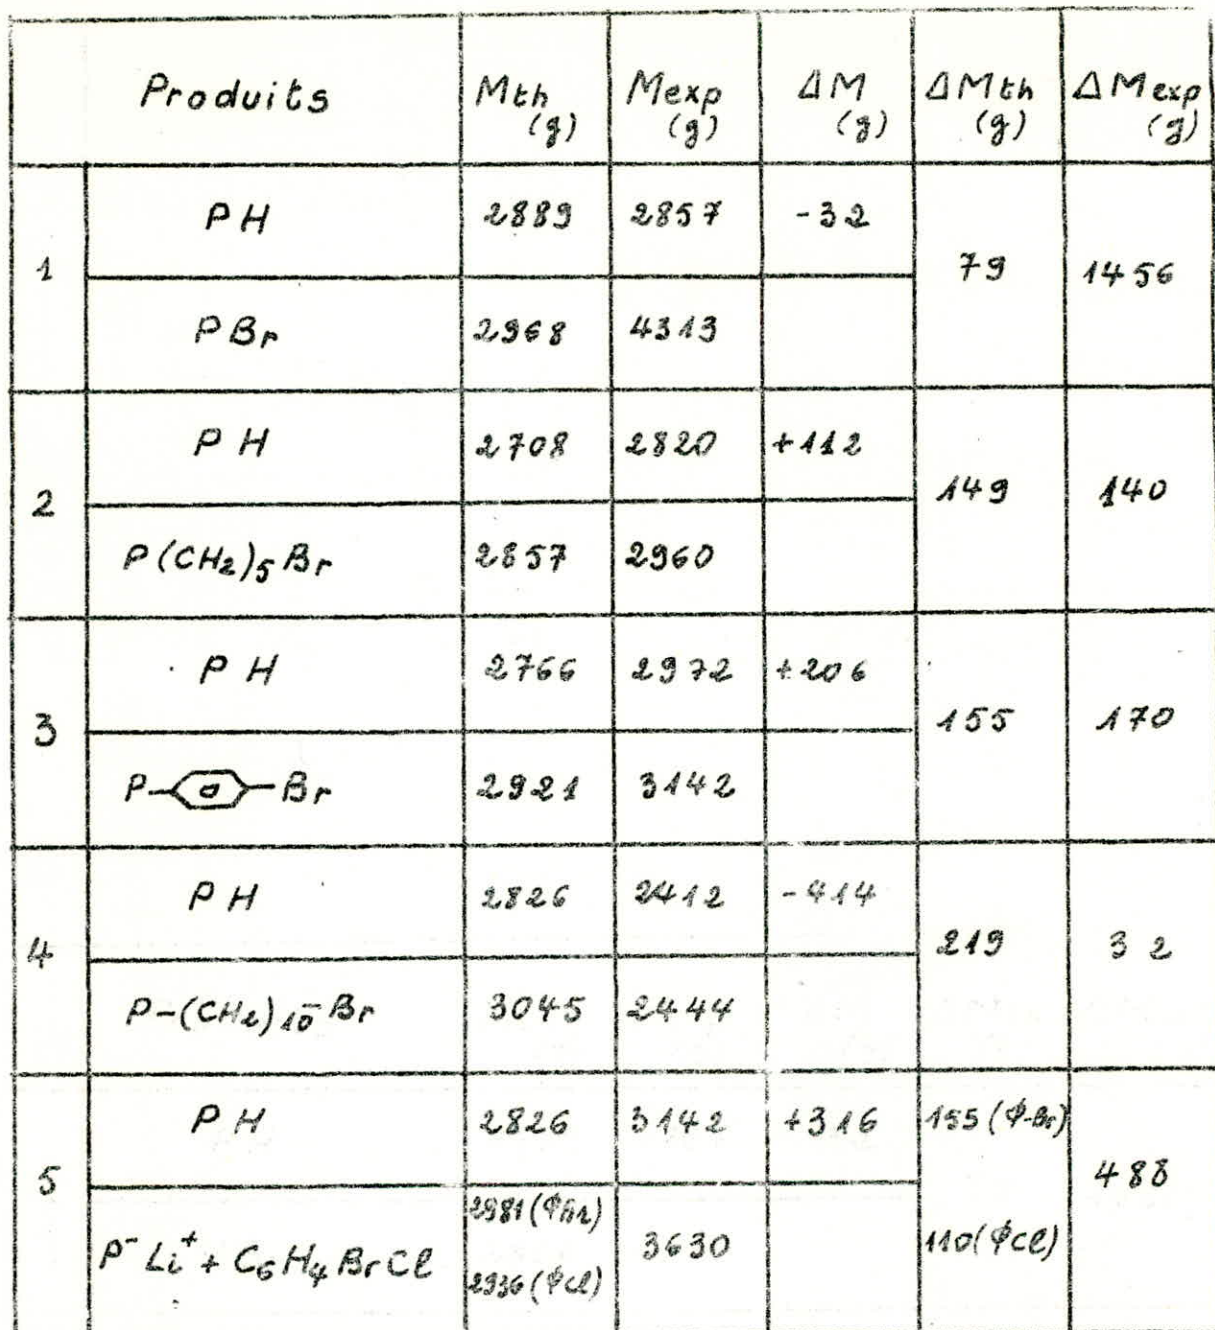 Produits Mth (g) Mexp (g) ΔM (g) ΔMth (g) ΔMexp (g)
1 PH 2889 2857 -32 79 1456
PBr 2968 4313
2 PH 2708 2820 +112 149 140
P(CH2)5Br 2857 2960
3 PH 2766 2972 +206 155 170
P- -Br 2921 3142
4 PH 2826 2412 -414 219 32
P-(CH2)10-Br 3045 2444
5 PH 2826 3142 +316 155 (φ-Br) 488
P⁻Li⁺ + C6H4BrCl 2981 (φBr) 3630 110 (φCl)
2936 (φCl)